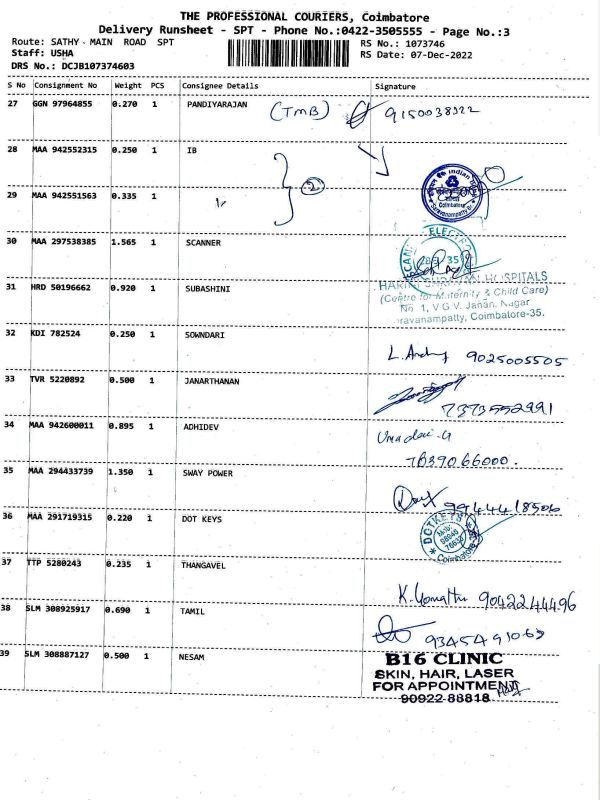 THE PROFESSIONAL COURIERS, Coimbatore
Delivery Runsheet - SPT - Phone No.:0422-3505555 - Page No.:3
Route: SATHY MAIN ROAD SPT
RS No.: 1073746
Staff: USHA
RS Date: 07-Dec-2022
DRS No.: DCJB107374603
S No Consignment No Weight PCS Consignee Details Signature
27 GGN 97964855 0.270 1 PANDIYARAJAN (TMB) 9150038922
28 MAA 942552315 0.250 1 IB
2
29 MAA 942551563 0.335 1
Indian
Coimbatore
Saravanampatty
30 MAA 297538385 1.565 1 SCANNER
31 HRD 50196662 0.920 1 SUBASHINI
HOSPITALS
(Centre for Maternity & Child Care)
No. 1, V G V. Janan. Nagar
Coimbatore-35.
32 KDI 782524 0.250 1 SOWNDARI
9025005505
33 TVR 5220892 0.500 1 JANARTHANAN
7373552991
34 MAA 942600011 0.895 1 ADHIDEV
7839066000.
35 MAA 294433739 1.350 1 SWAY POWER
9944418506
36 MAA 291719315 0.220 1 DOT KEYS
DOTKEYS
Coimbatore
37 TTP 5280243 0.235 1 THANGAVEL
9042244496
38 SLM 308925917 0.690 1 TAMIL
39 SLM 308887127 0.500 1 NESAM
B16 CLINIC
SKIN, HAIR, LASER
FOR APPOINTMENT
90922 88818